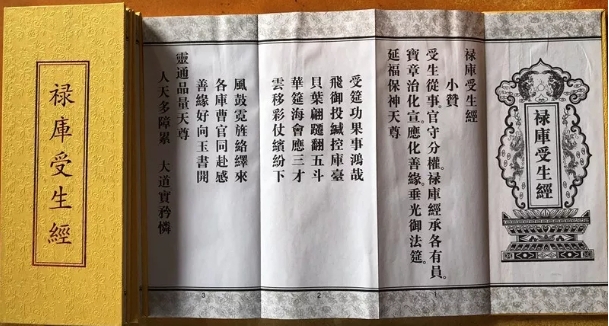 禄庫受生經
禄庫受生經
禄庫受生經
小贊
受生從事。官守分權。禄庫經承各有員。
寶章治化宣。應化善緣。垂光御法筵。
延福保神天尊
1
受筵功果事鴻哉
飛御投緘控庫臺
貝葉翩翻五斗
華筵海會應三才
雲移彩仗繽紛下
2
風鼓霓旌絡繹來
各庫曹官同赴感
善緣好向玉書開
靈通品量天尊
人天多障累 大道實矜憐
3